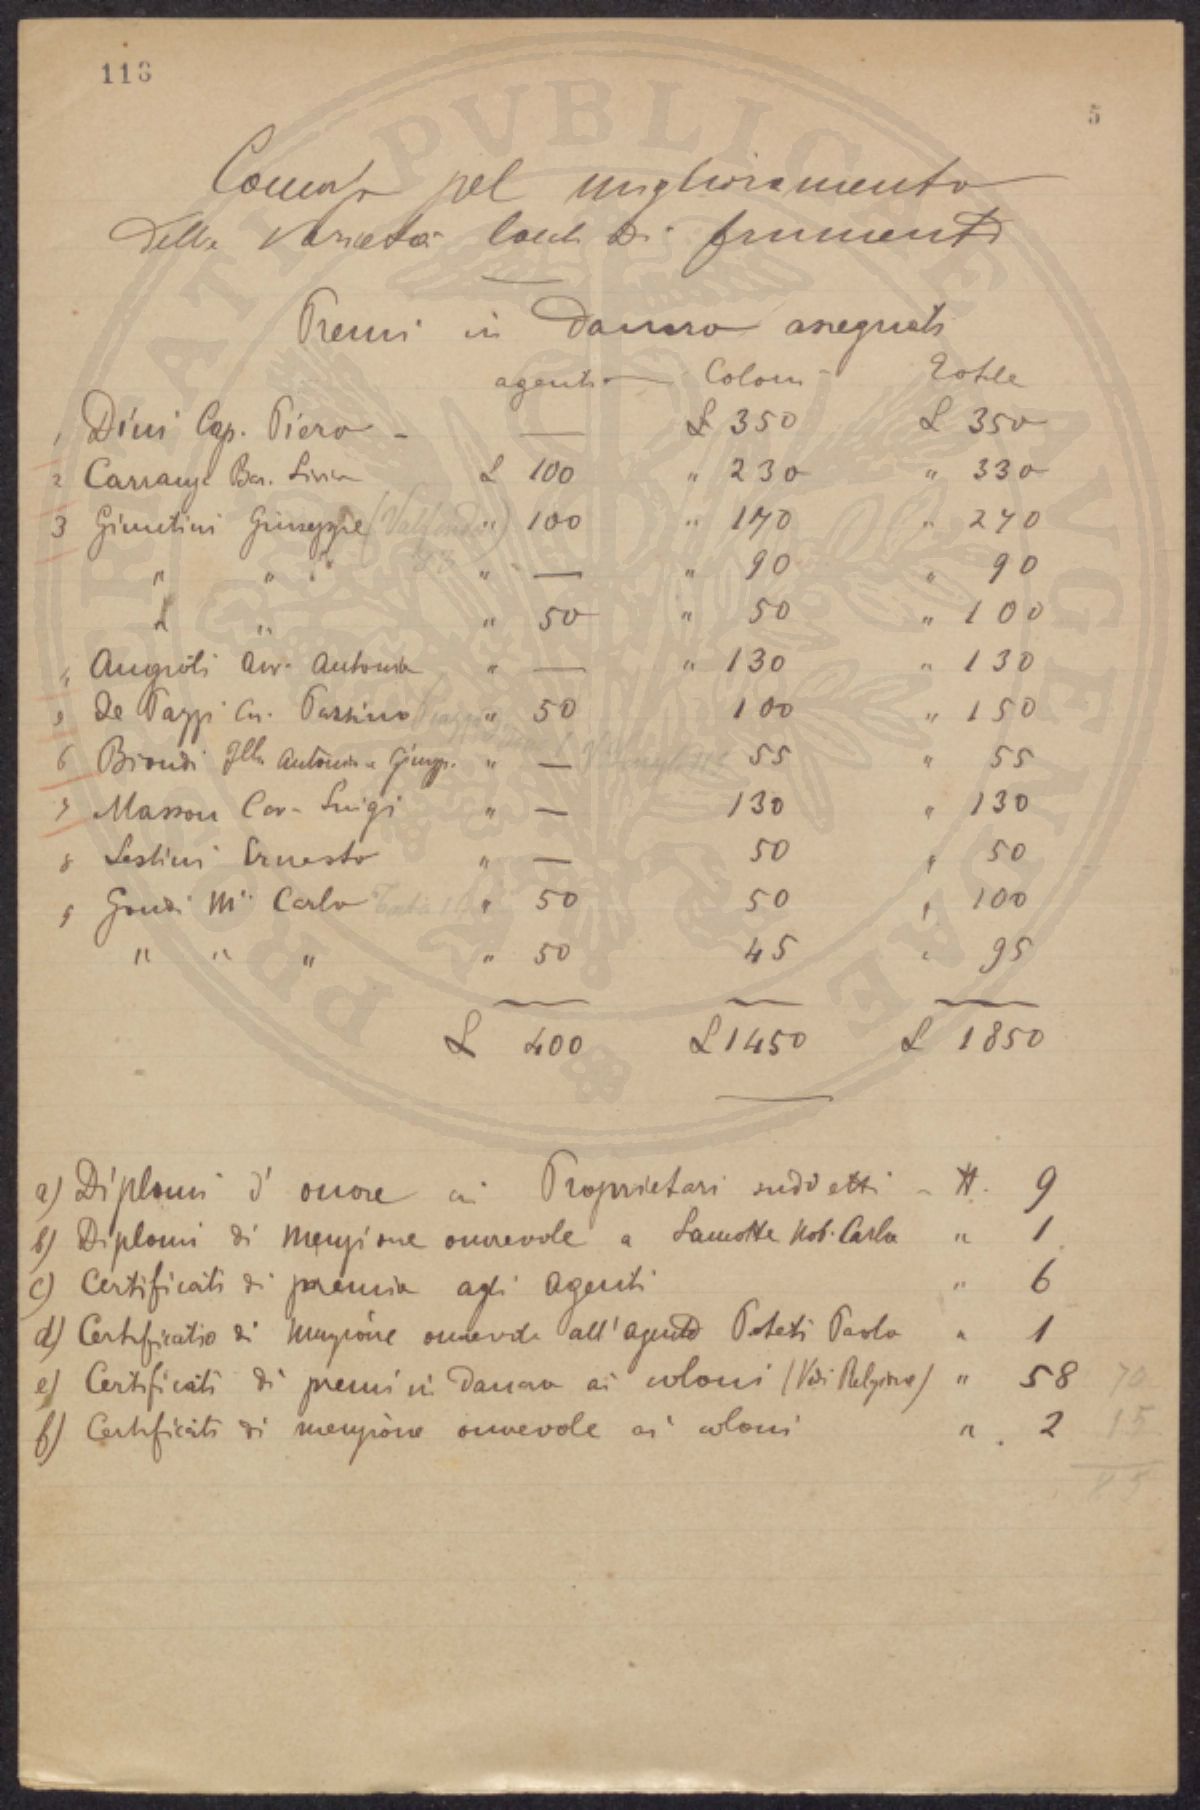 116
5
PROBATI PVBLICAE AVGENDAE
Concorso pel miglioramento
delle Varietà locali di frumento
Premi in Danaro assegnati
agenti Coloni Totale
1 Dini Cap. Piero - — £ 350 £ 350
2 Carrange Bar. Livia £ 100 " 230 " 330
3 Giuntini Giuseppe " 100 " 170 " 270
" " " " — " 90 " 90
" " " 50 " 50 " 100
4 Angioli Avv. Antonio " — " 130 " 130
5 De Pazzi Cav. Pazzino " 50 100 " 150
6 Biondi Antonio e Giusep. " — 55 " 55
7 Masson Cav. Luigi " — 130 " 130
8 Sestini Ernesto " — 50 " 50
9 Gondi M. Carlo " 50 50 " 100
" " " " 50 45 " 95
£ 400 £ 1450 £ 1850
a) Diplomi d'onore ai Proprietari suddetti - N. 9
b) Diplomi di Menzione onorevole a Lamotte Nob. Carlo " 1
c) Certificati di premio agli Agenti " 6
d) Certificatio di Menzione onorevole all'agente Poteti Paolo " 1
e) Certificati di premi in Danaro ai coloni (Vedi Relazione) " 58 70
f) Certificati di menzione onorevole ai coloni " 2 15
85